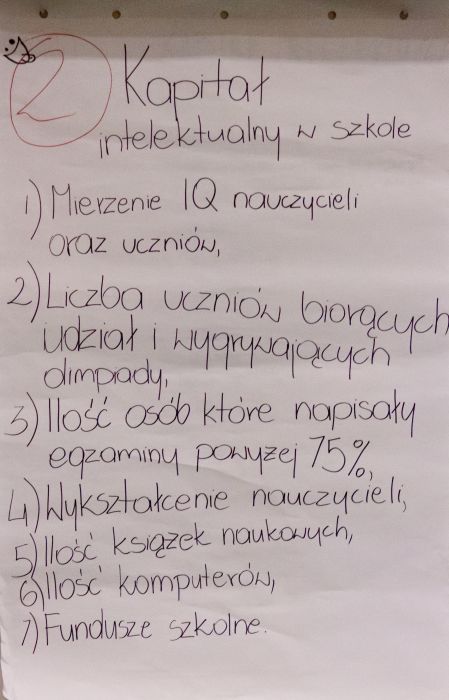 2
Kapitał
intelektualny w szkole
1) Mierzenie IQ nauczycieli
oraz uczniów,
2) Liczba uczniów biorących
udział i wygrywających
olimpiady,
3) Ilość osób które napisały
egzaminy powyżej 75%,
4) Wykształcenie nauczycieli,
5) Ilość książek naukowych,
6) Ilość komputerów,
7) Fundusze szkolne.